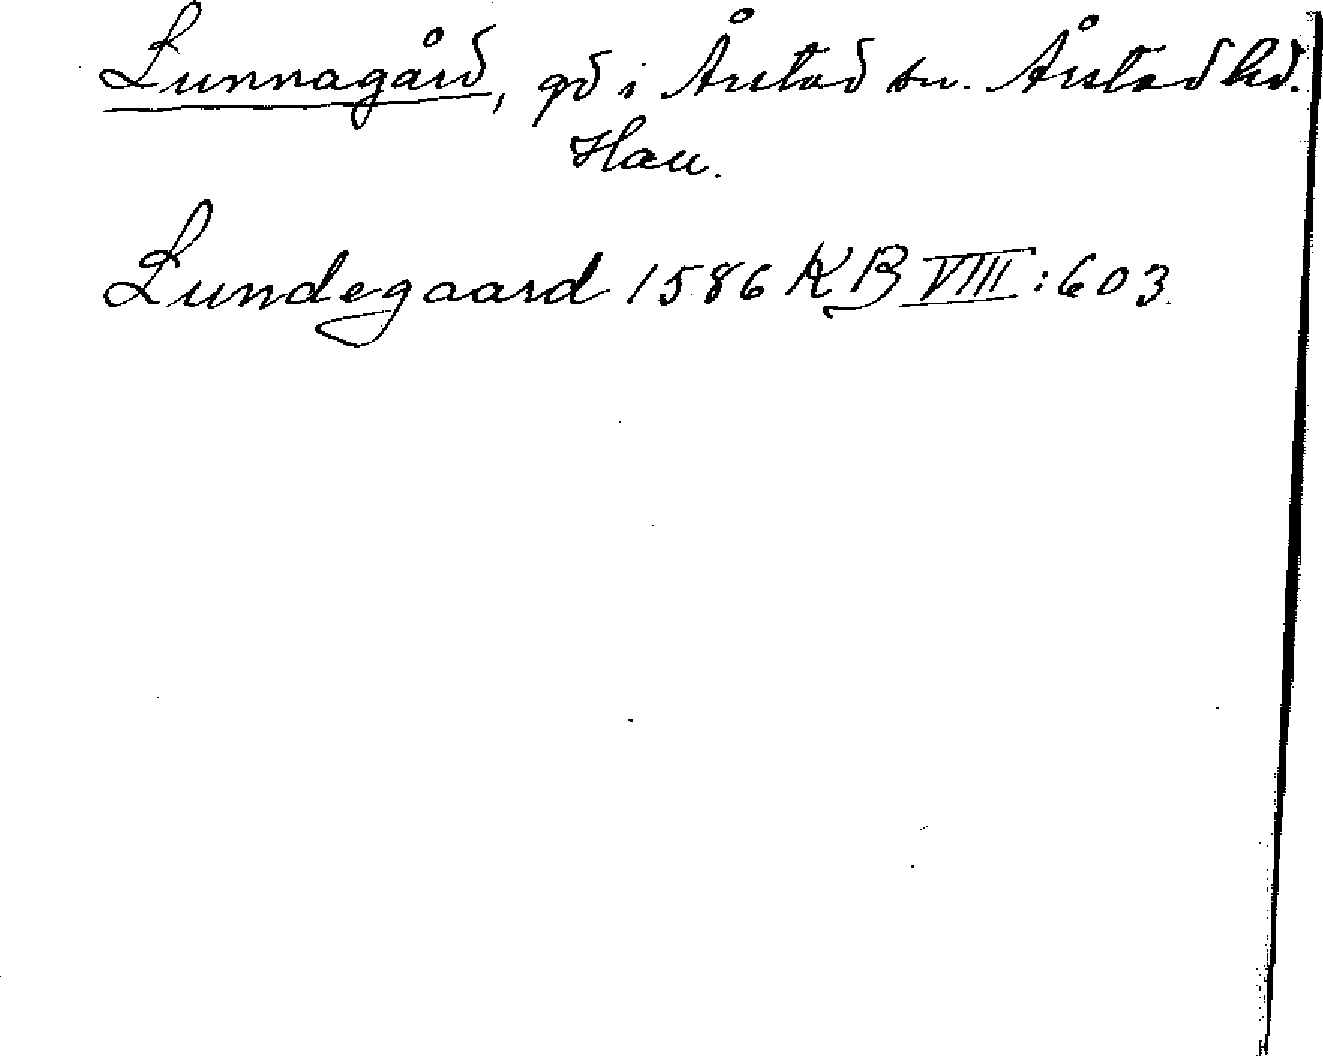 Lunnagård, gd i Årstad sn. Årstad hd.
Hall.
Lundegaard 1586 KB VIII:603